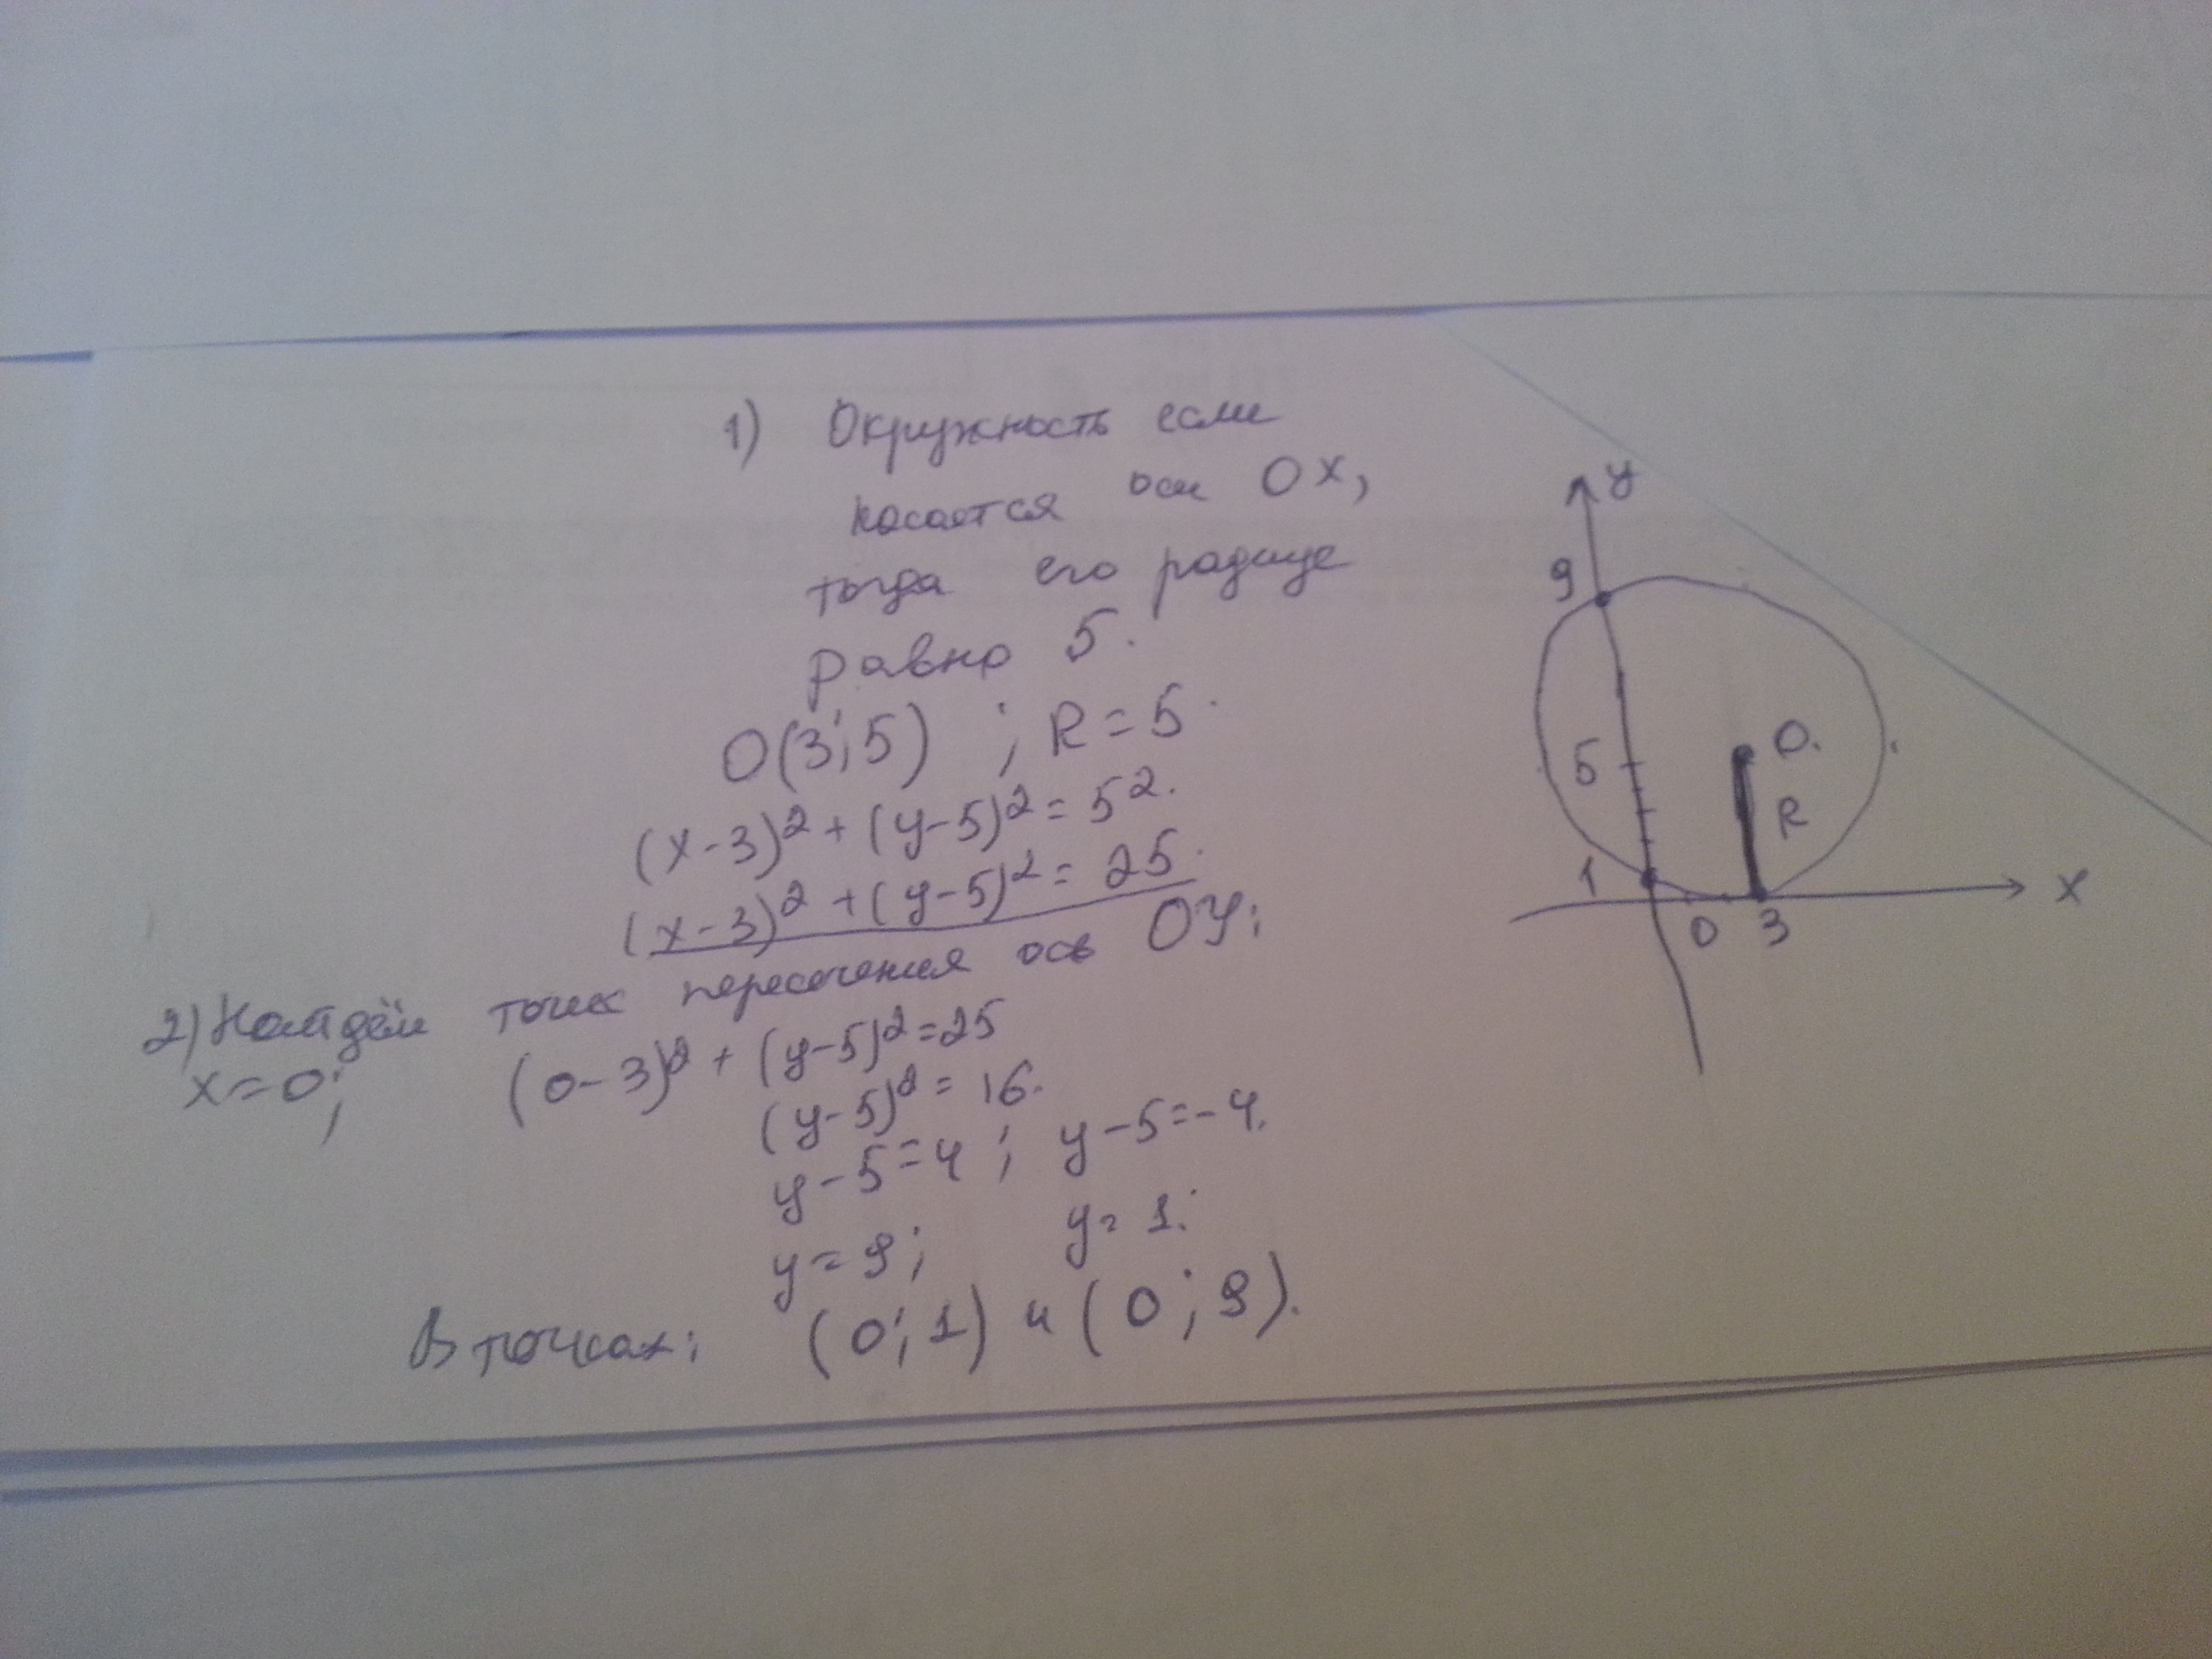 1) Окружность если
касается оси OX,
тогда его радиус
равно 5.
O(3;5) ; R=5.
(x-3)²+(y-5)²=5².
(x-3)²+(y-5)²=25.
2) Найдём точек пересечения ось OY:
x=0; (0-3)²+(y-5)²=25
(y-5)²=16.
y-5=4; y-5=-4.
y=9; y=1.
В точках: (0;1) и (0;9).
y
9
5
O.
R
1
x
0 3